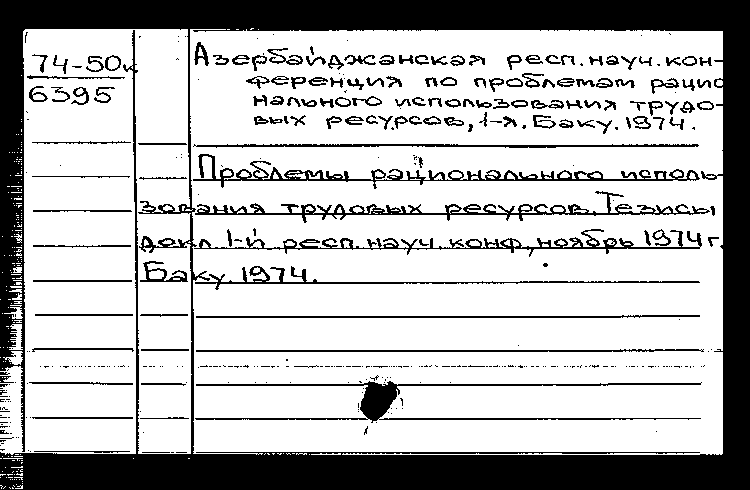 74-50к
6395
Азербайджанская респ. науч. кон-
ференция по проблемам рацио
нального использования трудо-
вых ресурсов, 1-я. Баку. 1974.
Проблемы рационального исполь-
зования трудовых ресурсов. Тезисы
докл 1-й респ. науч. конф., ноябрь 1974 г.
Баку. 1974.